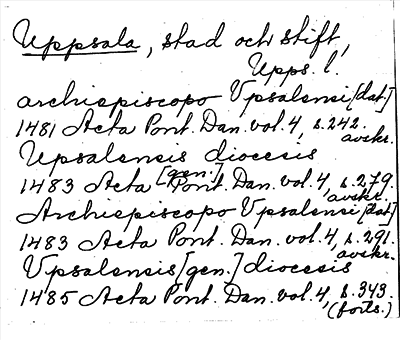 Uppsala, stad och stift,
Upps. l.
archiepiscopo Vpsalensi [dat.]
1481 Acta Pont. Dan. vol. 4, s. 242.
avskr.
Upsalensis diocesis
[gen.]
1483 Acta Pont. Dan. vol. 4, s. 279.
avskr.
Archiepiscopo Vpsalensi [dat]
1483 Acta Pont. Dan. vol. 4, s. 291.
avskr.
Vpsalensis [gen.] diocesis
1485 Acta Pont. Dan. vol. 4, s. 343.
(forts.)